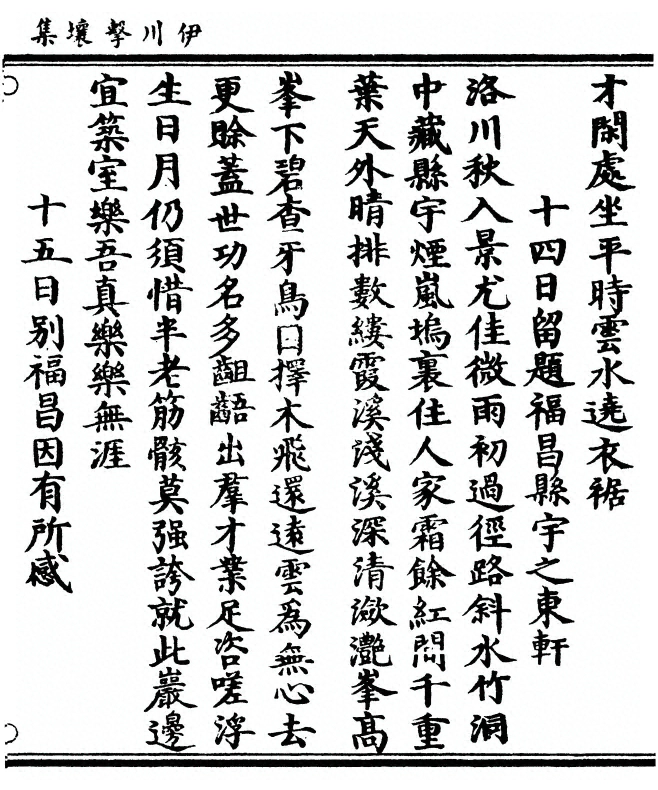 伊川擊壤集
才閑處坐平時雲水遶衣裾
十四日留題福昌縣宇之東軒
洛川秋入景尤佳微雨初過徑路斜水竹洞
中藏縣宇煙嵐塢裏住人家霜餘紅間千重
葉天外晴排數縷霞溪淺溪深清瀲灩峯高
峯下碧查牙鳥因擇木飛還遠雲為無心去
更賒蓋世功名多齟齬出羣才業足咨嗟浮
生日月仍須惜半老筋骸莫强誇就此巖邊
宜築室樂吾真樂樂無涯
十五日别福昌因有所感